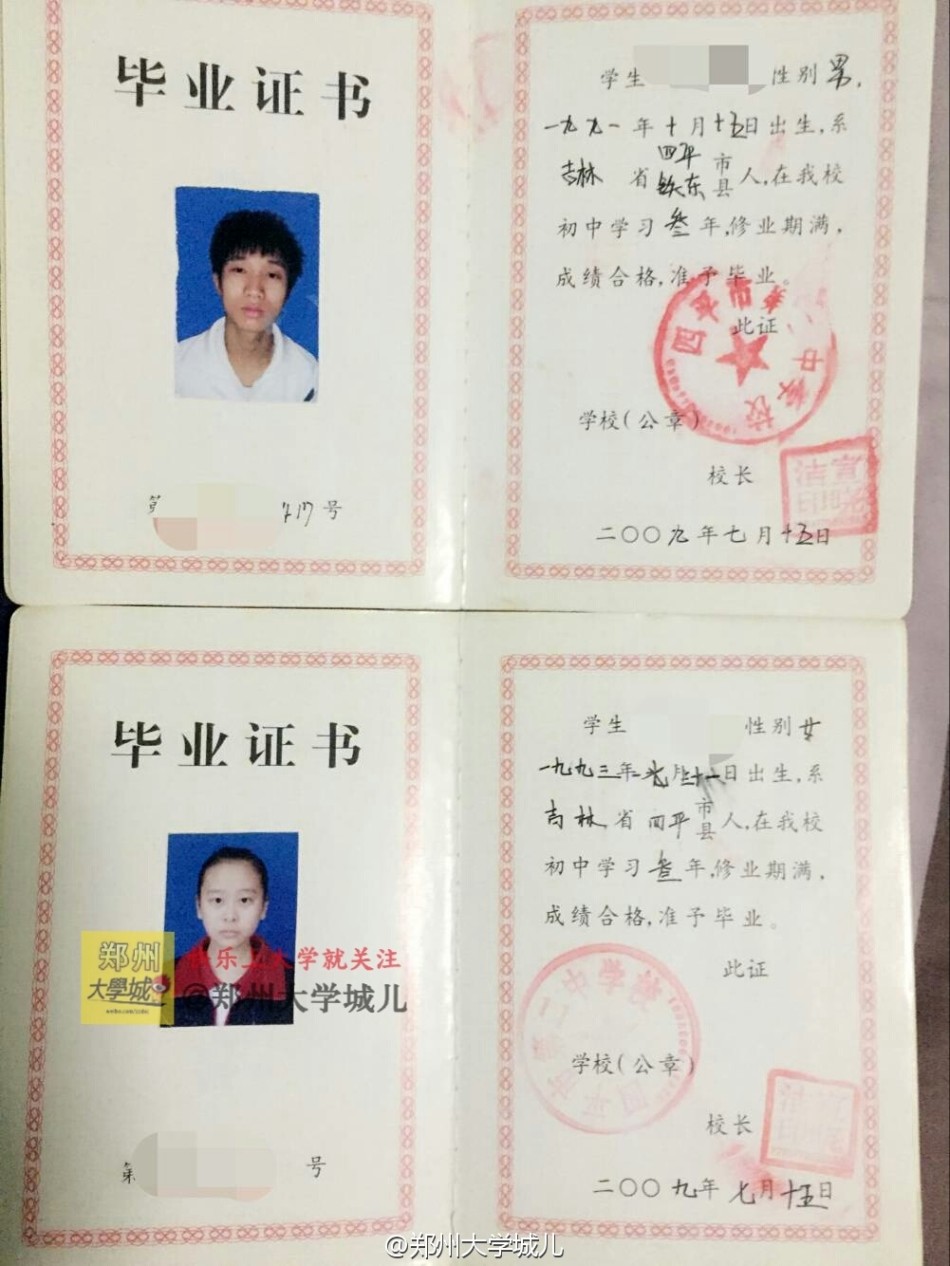 毕业证书
学生 性别 男,
一九九一年十月十五日出生,系
吉林 省 四平 市 铁东 县 人,在我校
初中学习 叁 年,修业期满,
成绩合格,准予毕业。
此证
学校(公章)
四平市第 中学校
校长
二〇〇九年七月十五日
第 号
毕业证书
学生 性别 女
一九九三年 月 日出生,系
吉林 省 四平 市 县 人,在我校
初中学习 叁 年,修业期满,
成绩合格,准予毕业。
此证
学校(公章)
四平市第二中学校
校长
二〇〇九年七月十五日
第 号
郑州
大學城
乐 大学就关注
@郑州大学城儿
@郑州大学城儿